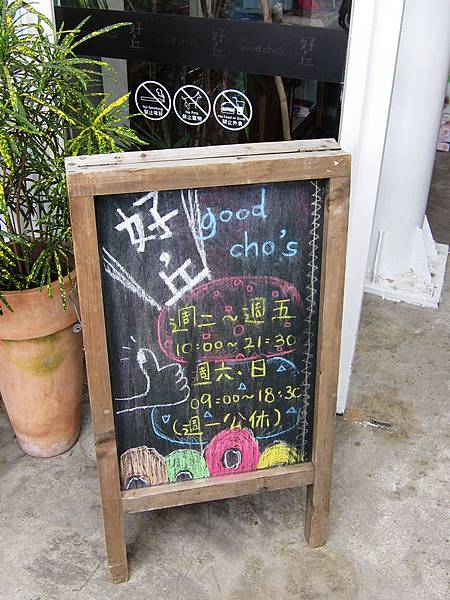 好丘 good cho's 好丘 good cho's 好丘
No Smoking
禁止吸煙
No Pets
禁止寵物
禁止外食
好丘
good
cho's
週二~週五
10:00~21:30
週六.日
09:00~18:30
(週一公休)